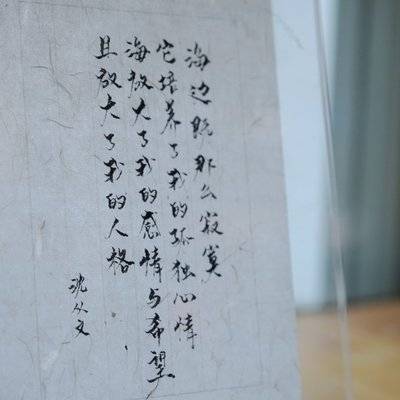 海边既那么寂寞
它培养了我的孤独心情
海放大了我的感情与希望
且放大了我的人格
沈从文